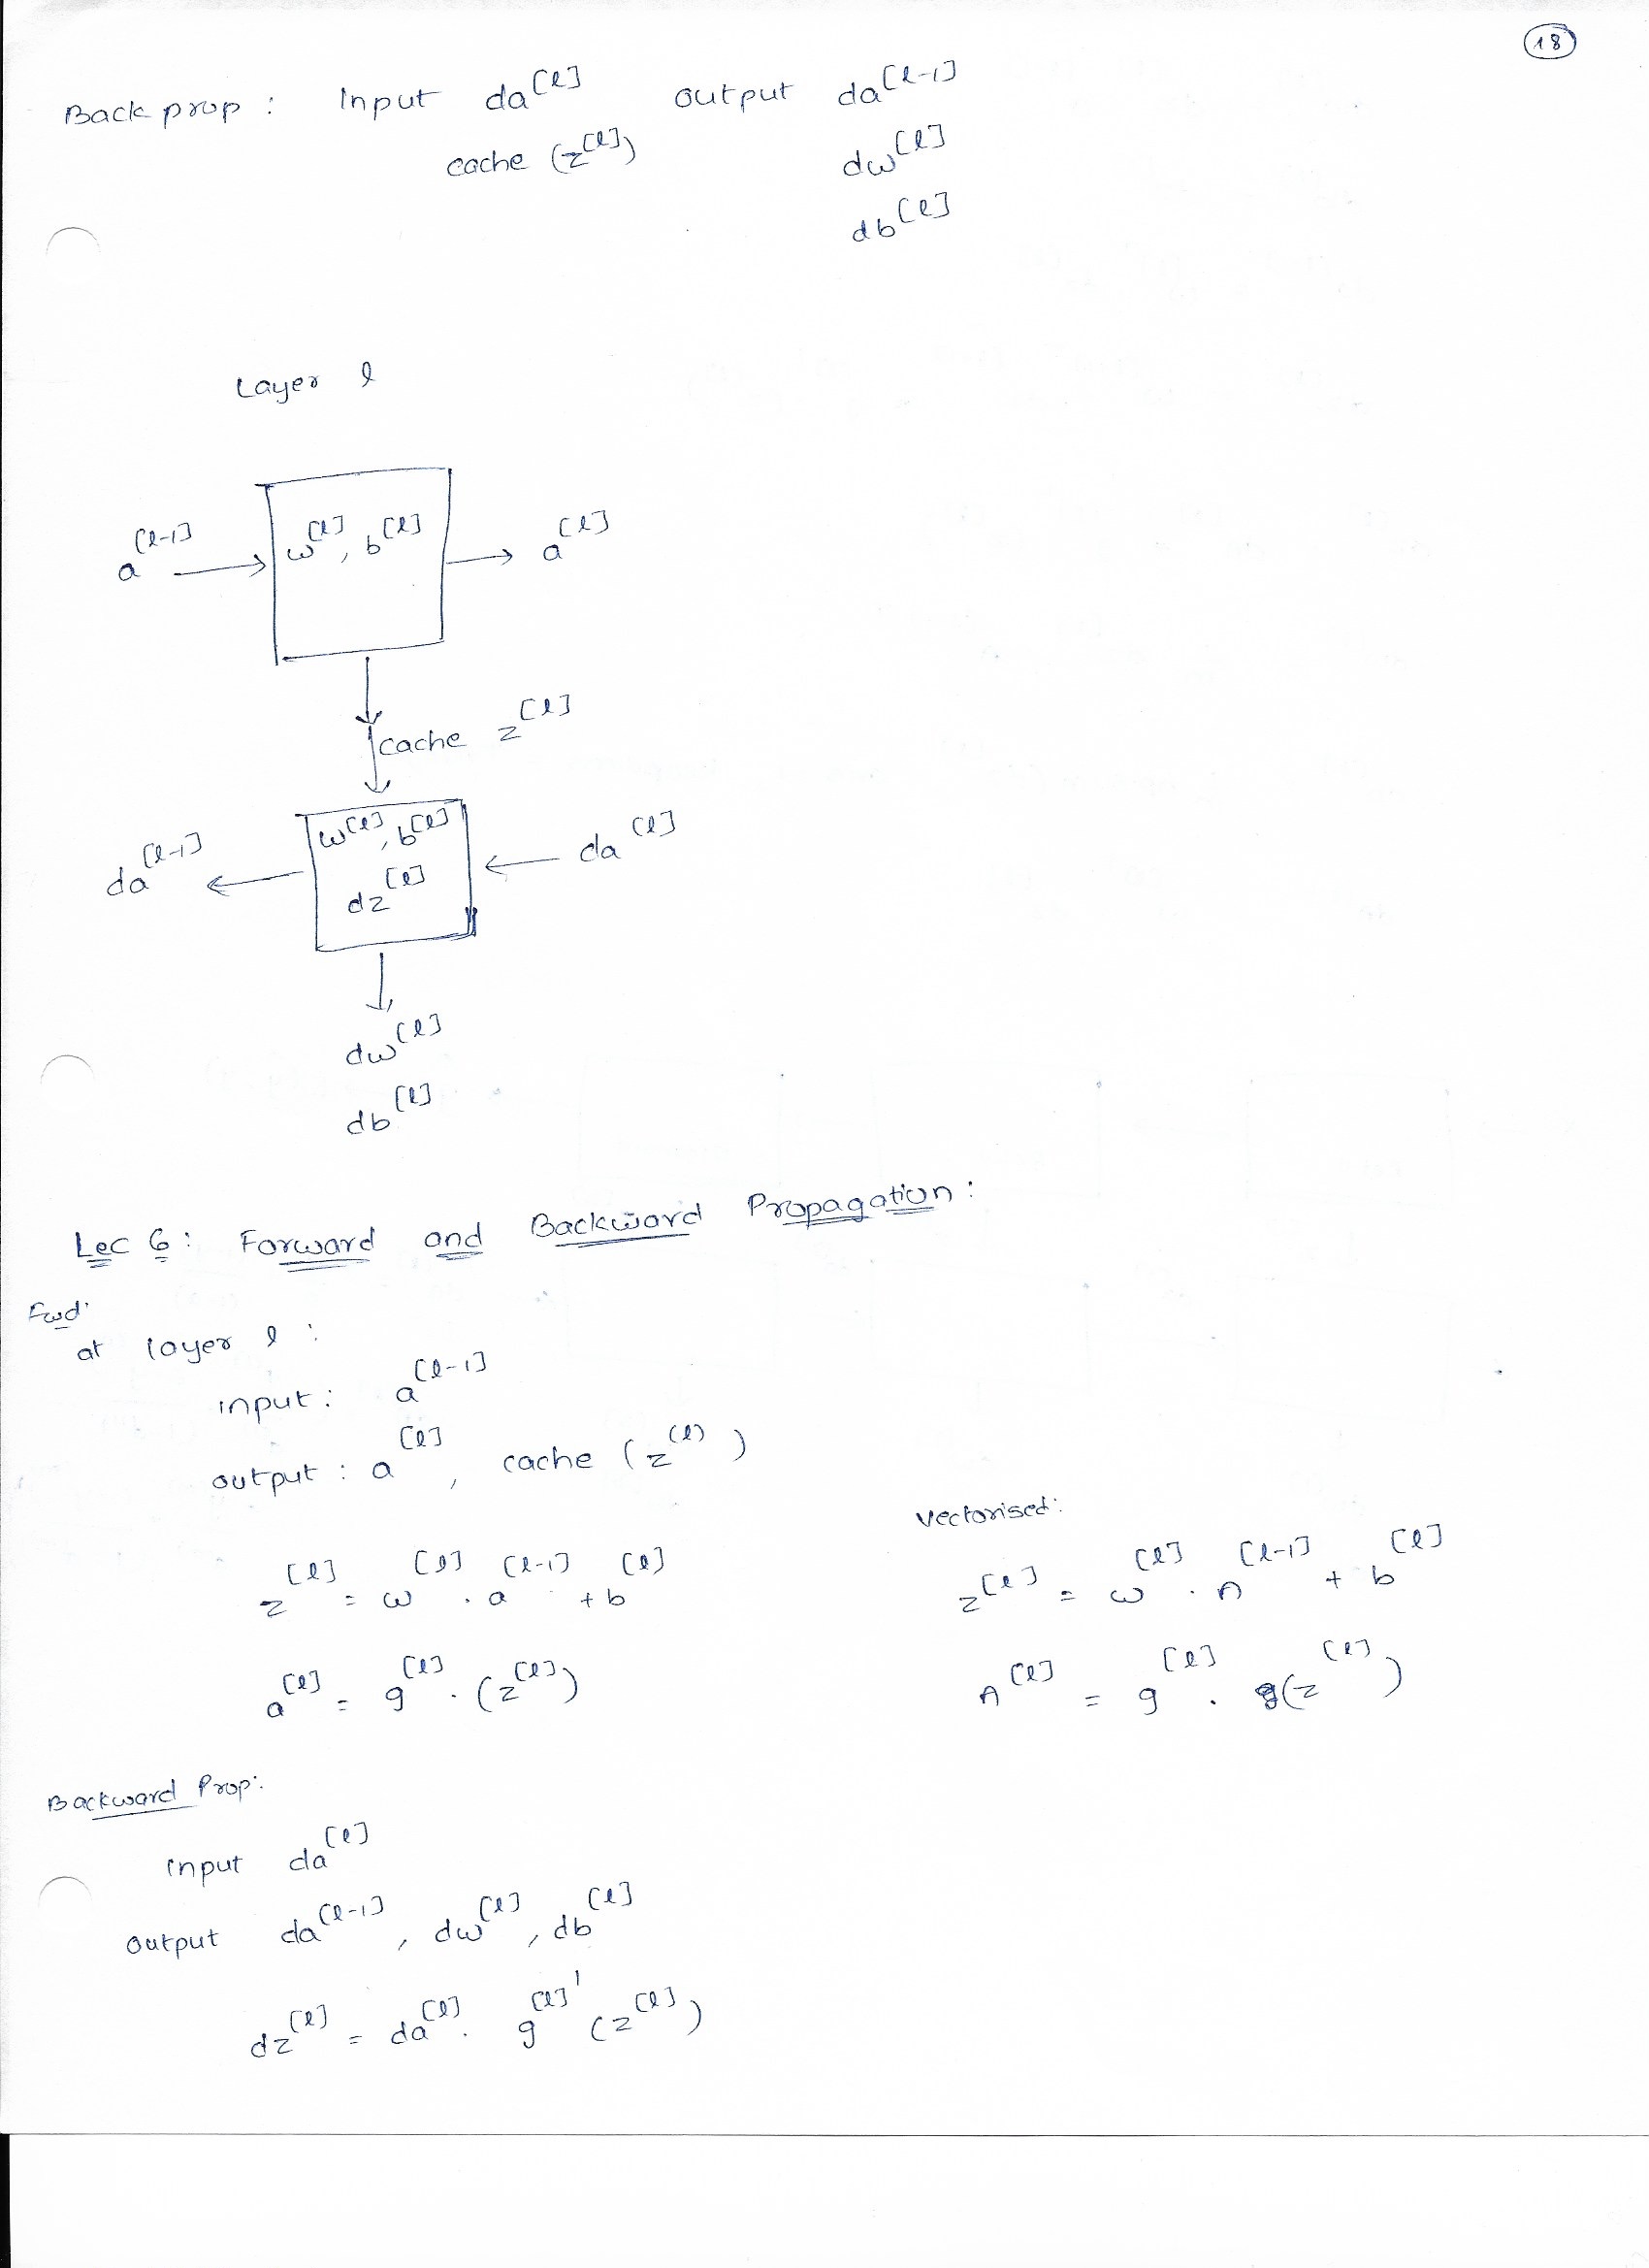 18
Back prop : Input da[l] output da[l-1]
cache (z[l]) dw[l]
db[l]
Layer l
a[l-1] → w[l], b[l] → a[l]
cache z[l]
da[l-1] ← w[l], b[l] ← da[l]
dz[l]
dw[l]
db[l]
Lec 6: Forward and Backward Propagation:
Fwd:
at layer l :
input: a[l-1]
output : a[l], cache (z(l))
Vectorised:
z[l] = w[l] . a[l-1] + b[l] z[l] = w[l] . A[l-1] + b[l]
a[l] = g[l] . (z[l]) A[l] = g[l] . (z[l])
Backward Prop:
Input da[l]
Output da[l-1], dw[l], db[l]
dz[l] = da[l] . g[l]' (z[l])